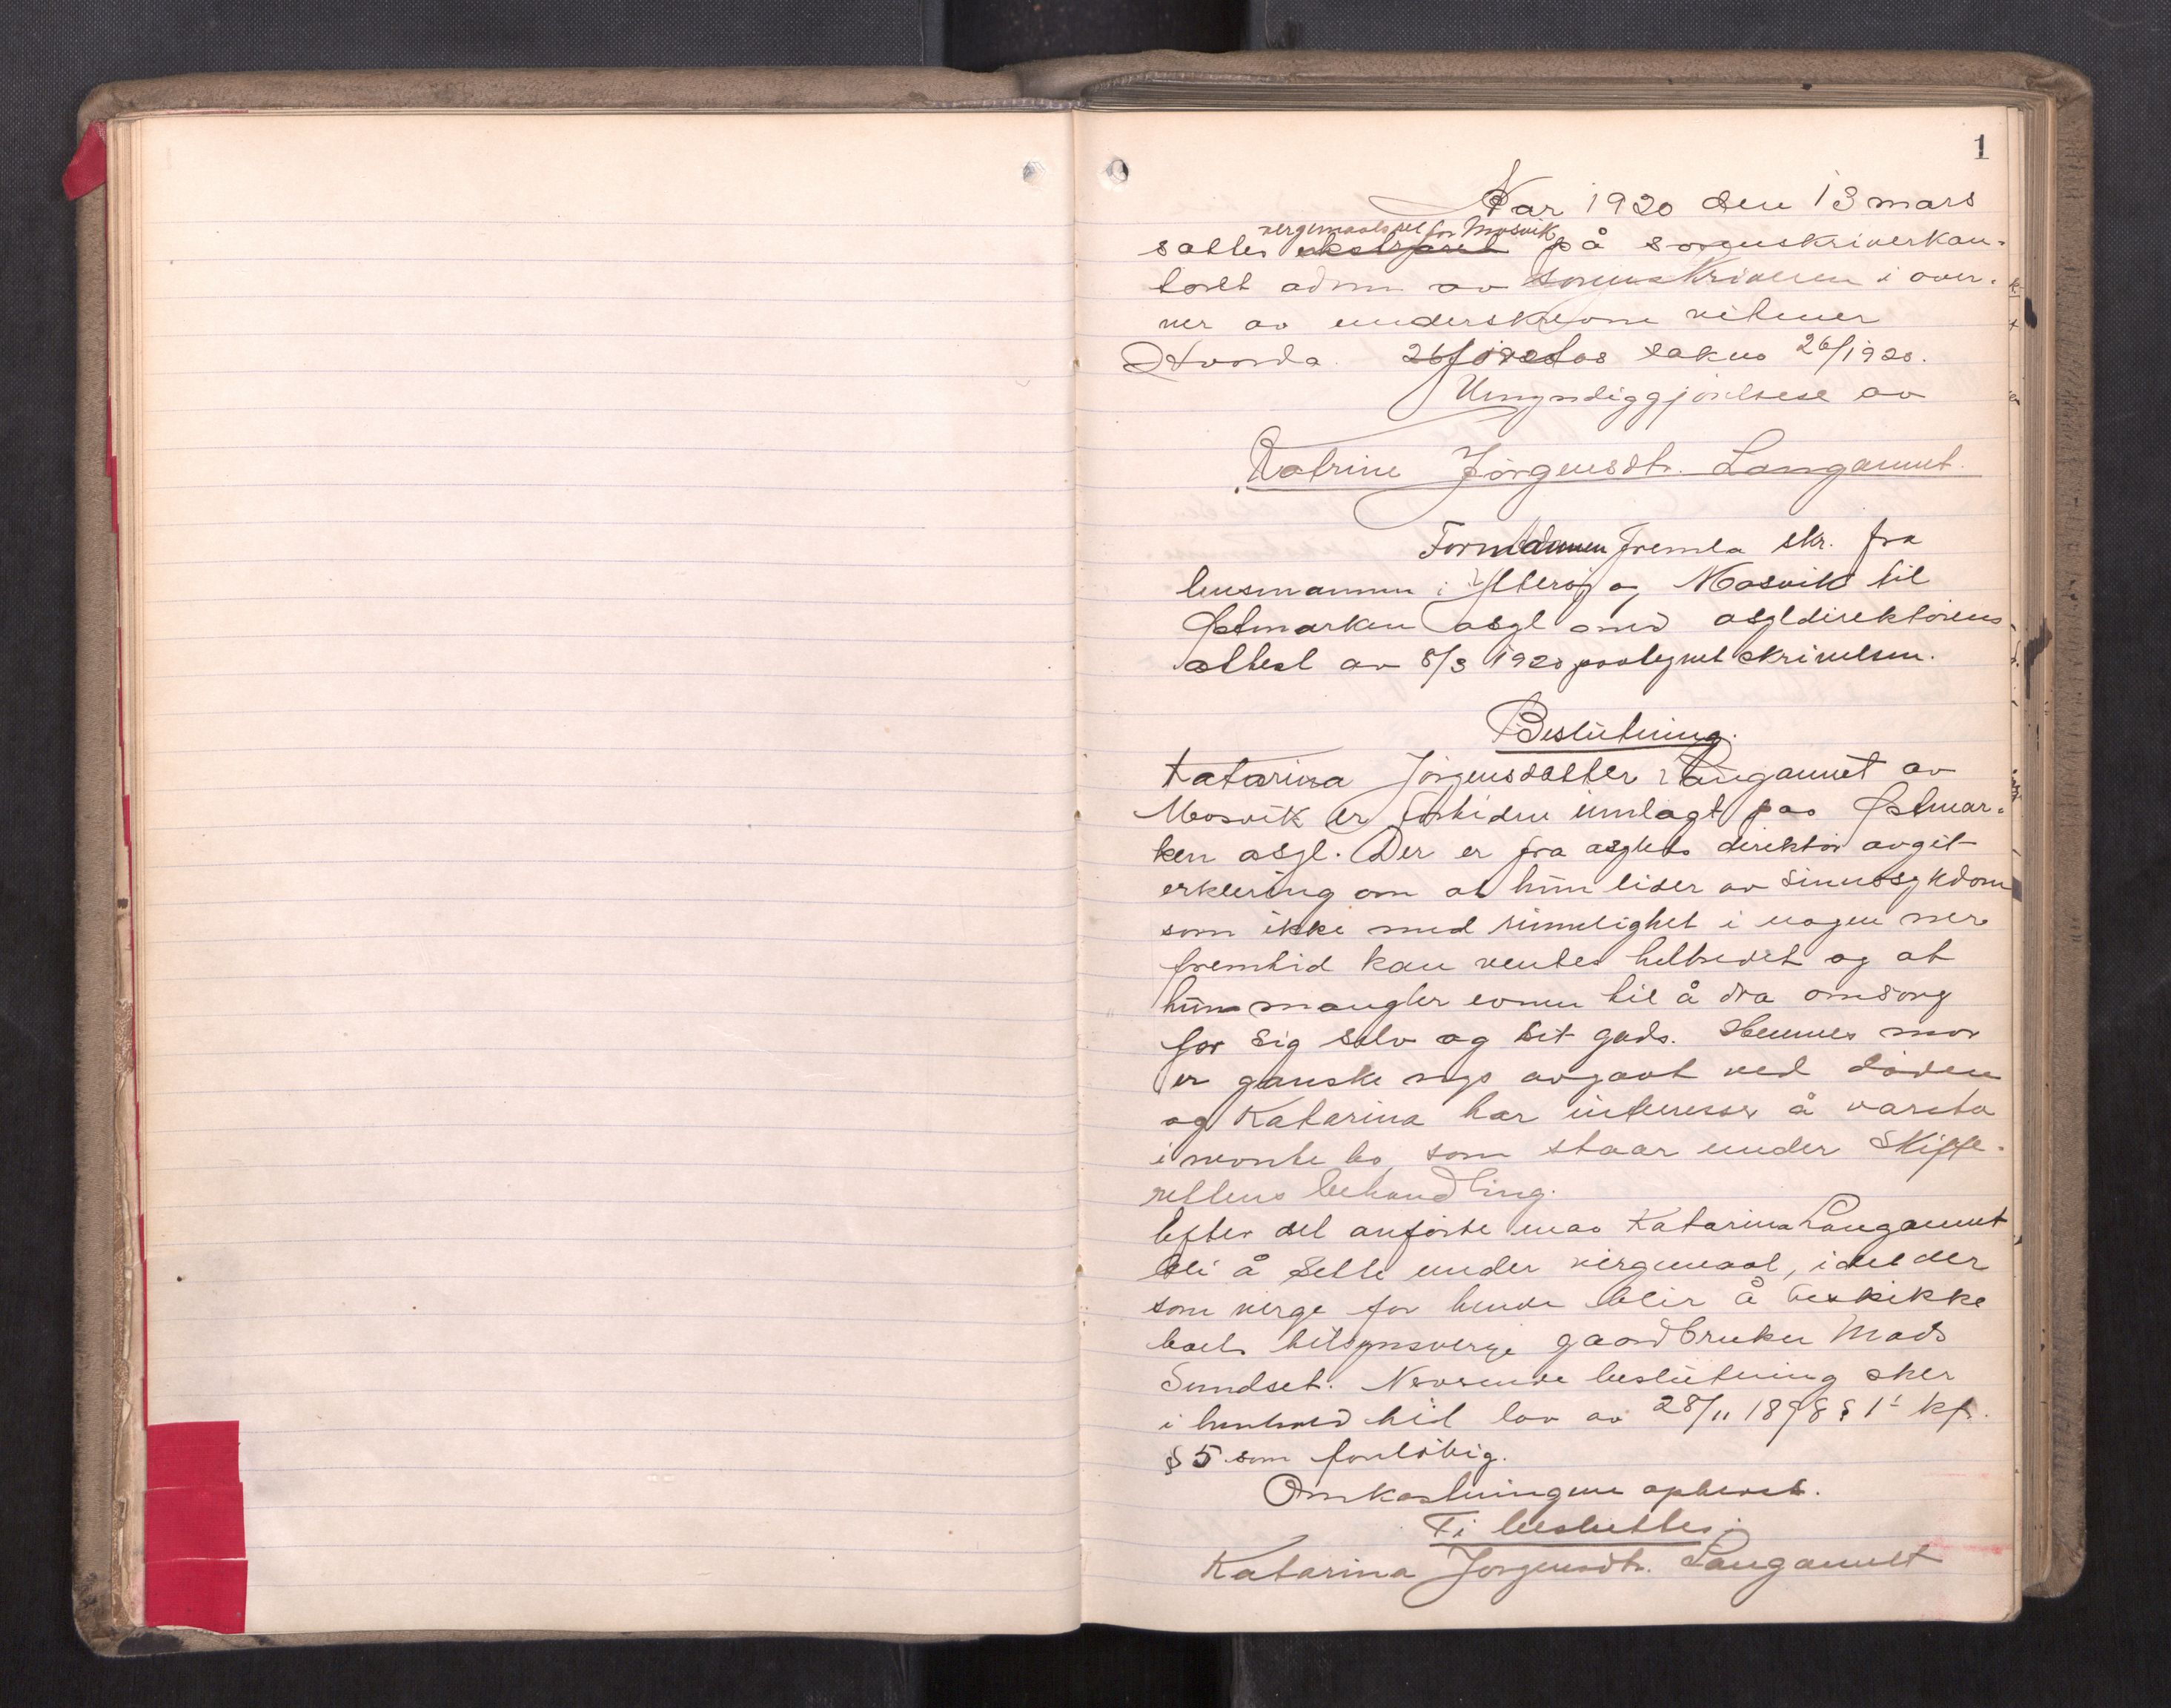 1
Aar 1920 den 13 mars
vergemaalsret for Mosvik
sattes ekstraret på sorenskriverkon-
toret adm av sorenskriveren i over-
vær av underskrevne vitner
Hvorda. saknr 26/1920.
Umyndiggjörelse av
Katrine Jörgensdtr. Langamnet.
Formannen fremla skr. fra
lensmannen i Ytterøy og Mosvik til
Østmarken asyl med asyldirektörens
attest av 8/3 1920 paategnet skrivelsen.
Beslutning.
Katarina Jörgensdatter Langamnet av
Mosvik er fortiden innlagt paa Østmar-
ken asyl. Der er fra asylets direktör avgit
erklæring om at hun lider av sinnssykdom
som ikke med rimelighet i nogen nær
fremtid kan ventes helbredet og at
hun mangler evnen til å dra omsorg
for sig selv og sit gods. Hennes mor
er ganske nys avgaat ved döden
og Katarina har interesser å vareta
i morens bo som staar under skifte-
rettens behandling.
Efter det anförte maa Katarina Langamnet
bli å sette under vergemaal, idet der
som verge for hende blir å beskikke
boets tilsynsverge gaardbruker Mads
Sundset. Nærværende beslutning sker
i henhold til lov av 28/11 1898 § 1 kfr.
§ 5 som forlöbig.
Omkostningene opheves.
Ti besluttes:
Katarina Jorgensdtr. Langamnet